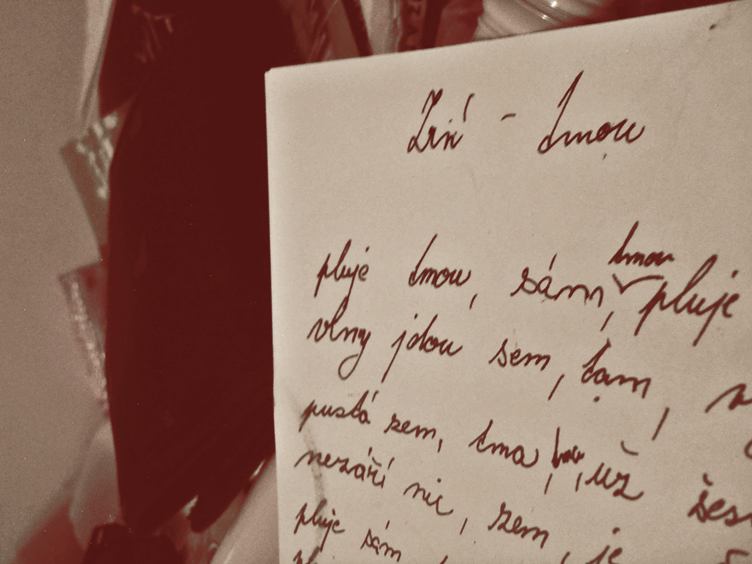 Zní - tmou
pluje tmou, sám, tmou pluje
vlny jdou sem, tam,
pustá zem, tma už
nezáří nic, zem, je
pluje sám